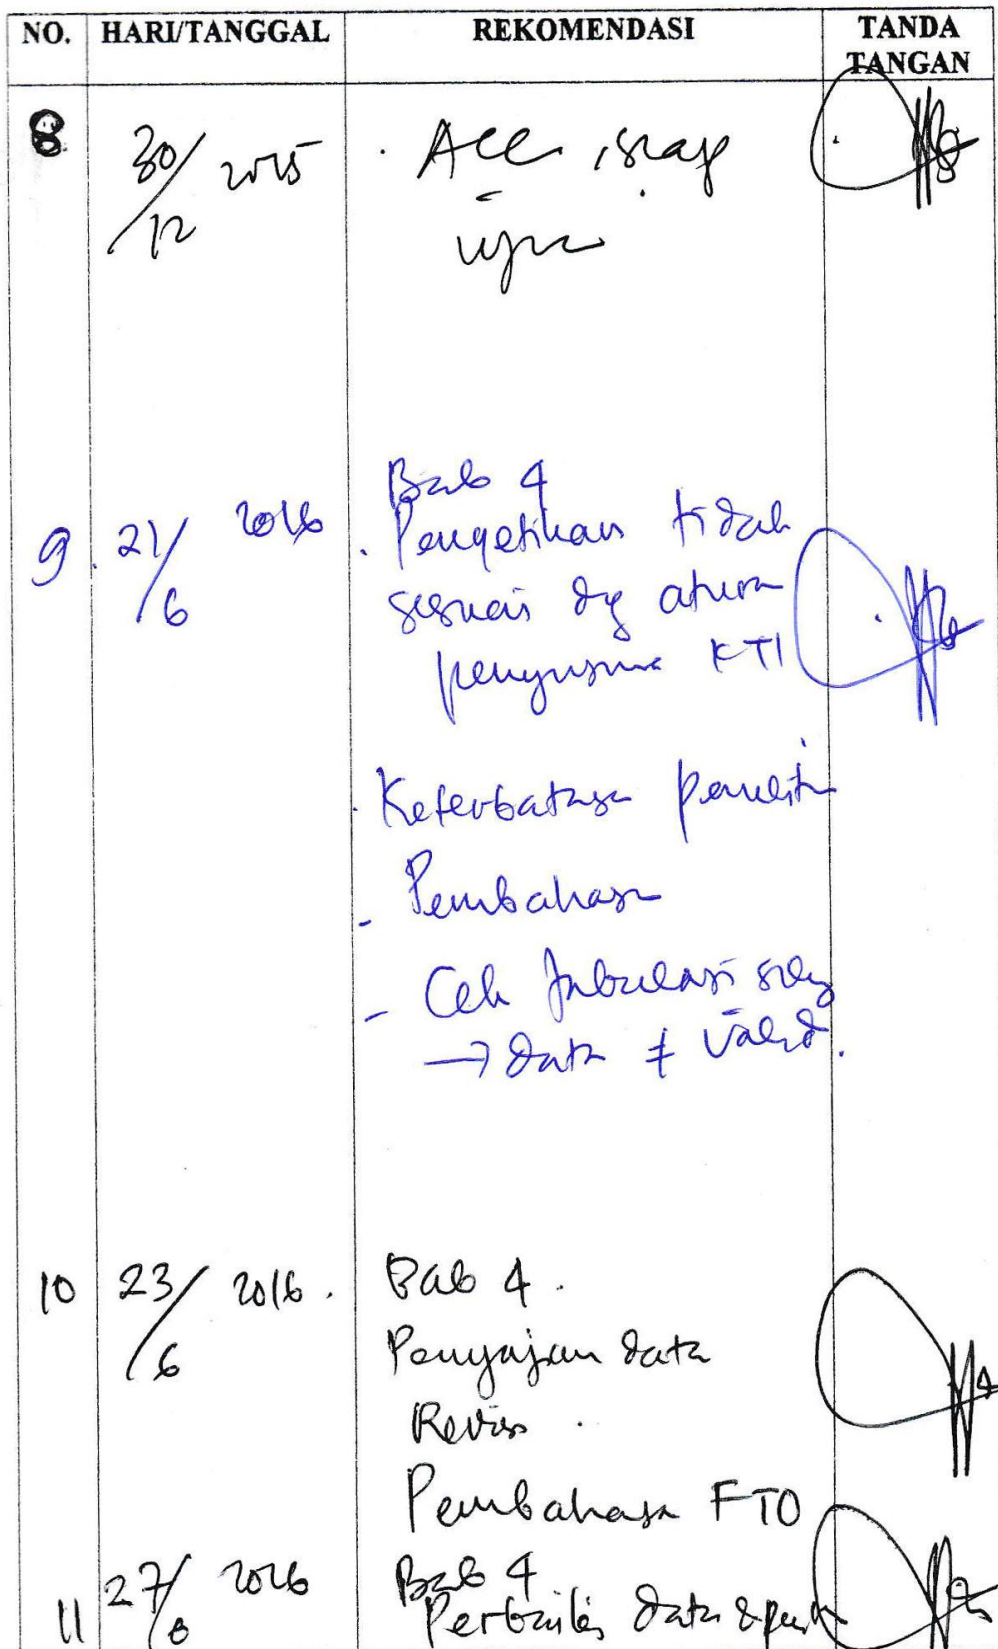 NO. HARI/TANGGAL REKOMENDASI TANDA TANGAN
8 30/12 2015 . Acc siap
ujian
9. 21/6 2016 Bab 4
. Pengetikan tidak
sesuai dg aturan
penyusunan KTI
. Keterbatasan peneliti
- Pembahasan
- Cek tabulasi silang
→ data ≠ valid.
10 23/6 2016. Bab 4.
Penyajian data
Revisi
Pembahasan FTO
11 27/6 2016 Bab 4
Perbaiki data &